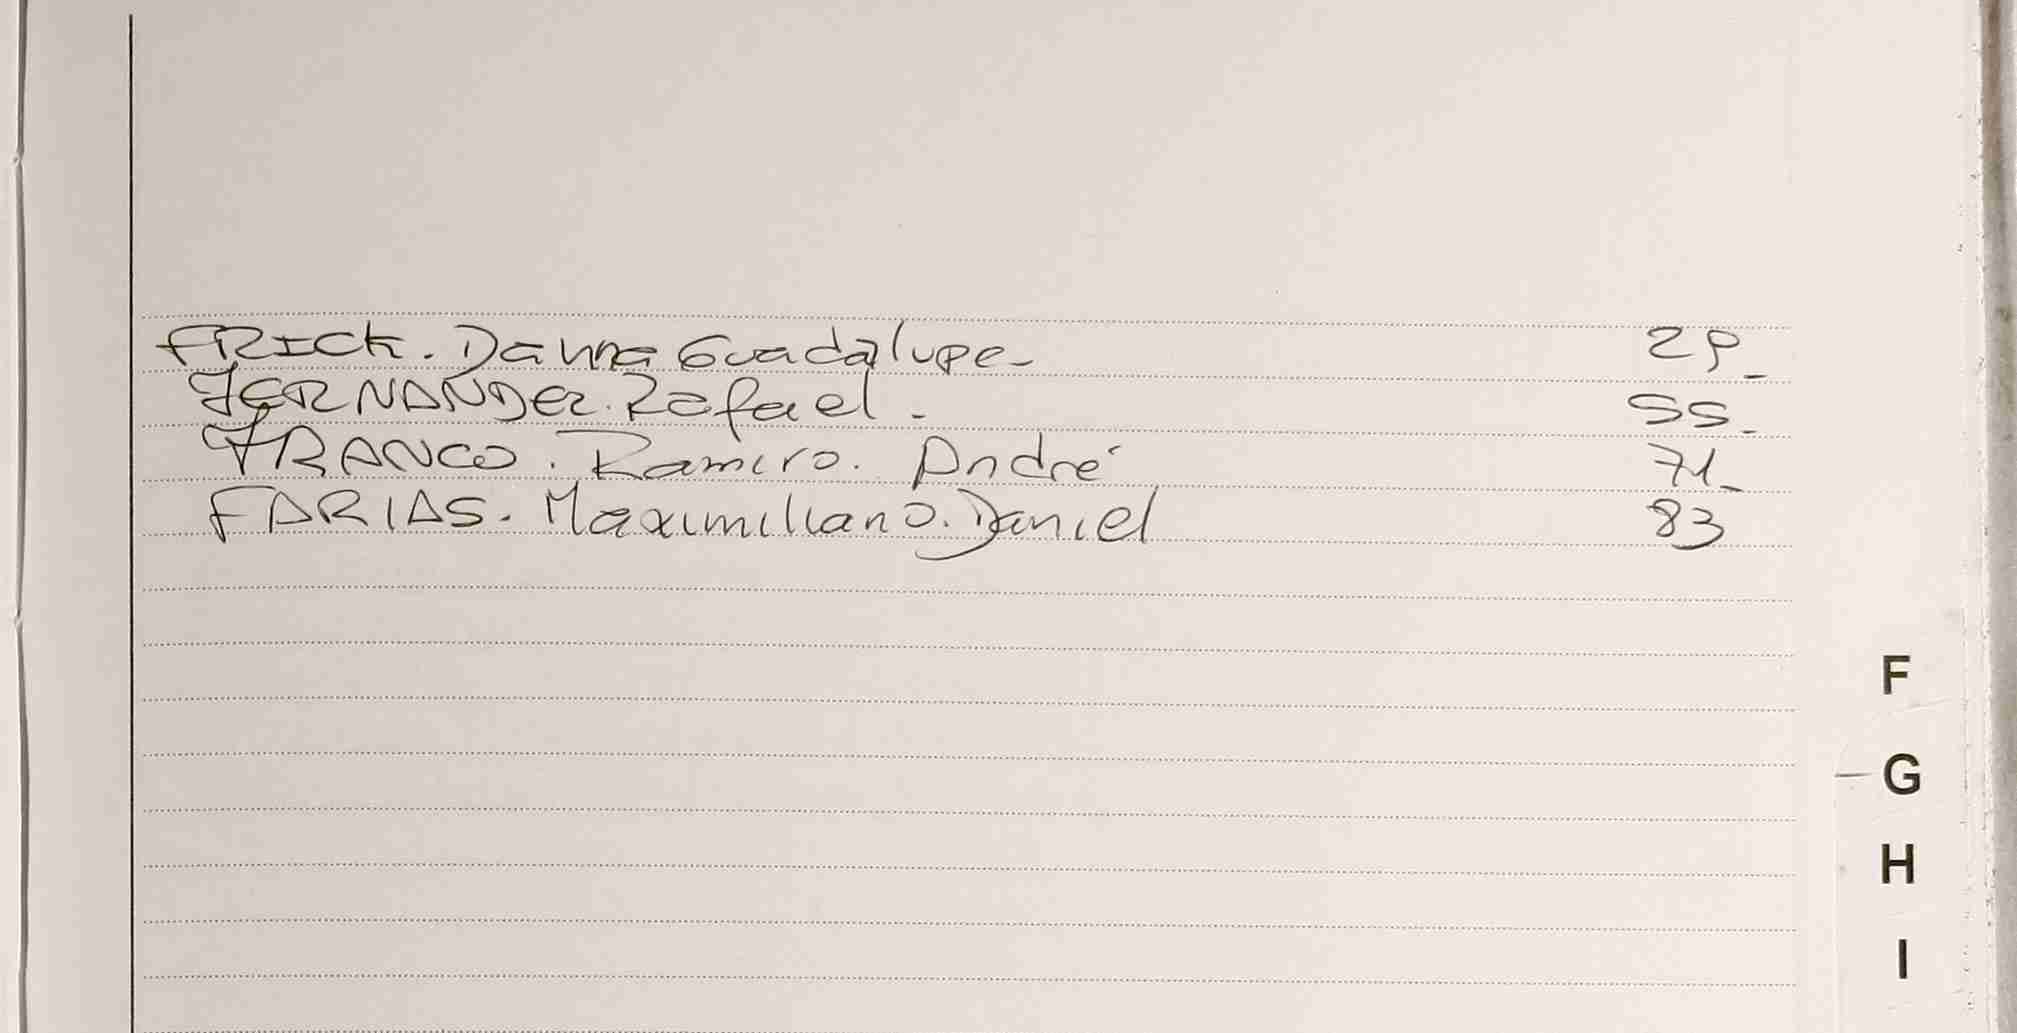 FRICK. Danna Guadalupe- 29_
FERNANDEZ. Rafael. - 55_
FRANCO. Ramiro. André 71_
FARIAS. Maximiliano. Daniel 83
F
G
H
I